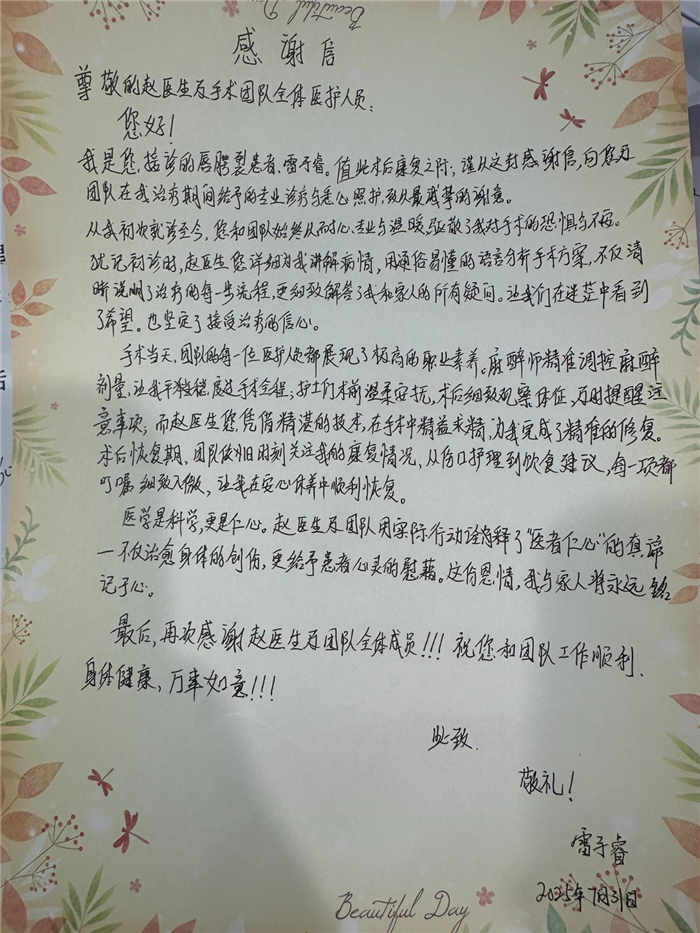 Beautiful Day
感谢信
尊敬的赵医生及手术团队全体医护人员:
您好!
我是您接诊的唇腭裂患者、雷子睿。值此术后康复之际,谨以这封感谢信,向您及
团队在我治疗期间给予的专业诊疗与悉心照护,致以最诚挚的谢意。
从我初次就诊至今,您和团队始终从耐心、专业与温暖,驱散了我对手术的恐惧与不安。
犹记初诊时,赵医生您详细为我讲解病情,用通俗易懂的语言分析手术方案,不仅清
晰说明了治疗的每一步流程,更细致解答了我和家人的所有疑问。让我们在迷茫中看到
了希望。也坚定了接受治疗的信心。
手术当天、团队的每一位医护人员都展现了极高的职业素养。麻醉师精准调控麻醉
剂量,让我平稳度过手术全程;护士们术前温柔安抚,术后细致观察体征,及时提醒注
意事项;而赵医生您凭借精湛的技术,在手术中精益求精,为我完成了精准的修复。
术后恢复期、团队依旧时刻关注我的康复情况,从伤口护理到饮食建议,每一项都
叮嘱细致入微,让我在安心休养中顺利恢复。
医学是科学,更是仁心。赵医生及团队用实际行动诠释了“医者仁心”的真谛
一不仅治愈身体的创伤,更给予患者心灵的慰藉。这份恩情,我与家人将永远铭
记于心。
最后,再次感谢赵医生及团队全体成员!!!祝您和团队工作顺利、
身体健康,万事如意!!!
此致
敬礼!
雷子睿
2025年7月31日
Beautiful Day